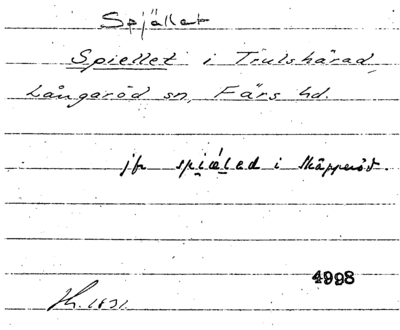 Spjället
Spiellet i Trulshärad,
Långaröd sn, Färs hd.
jfr spiäled i Käpperöd.
4998
1631.